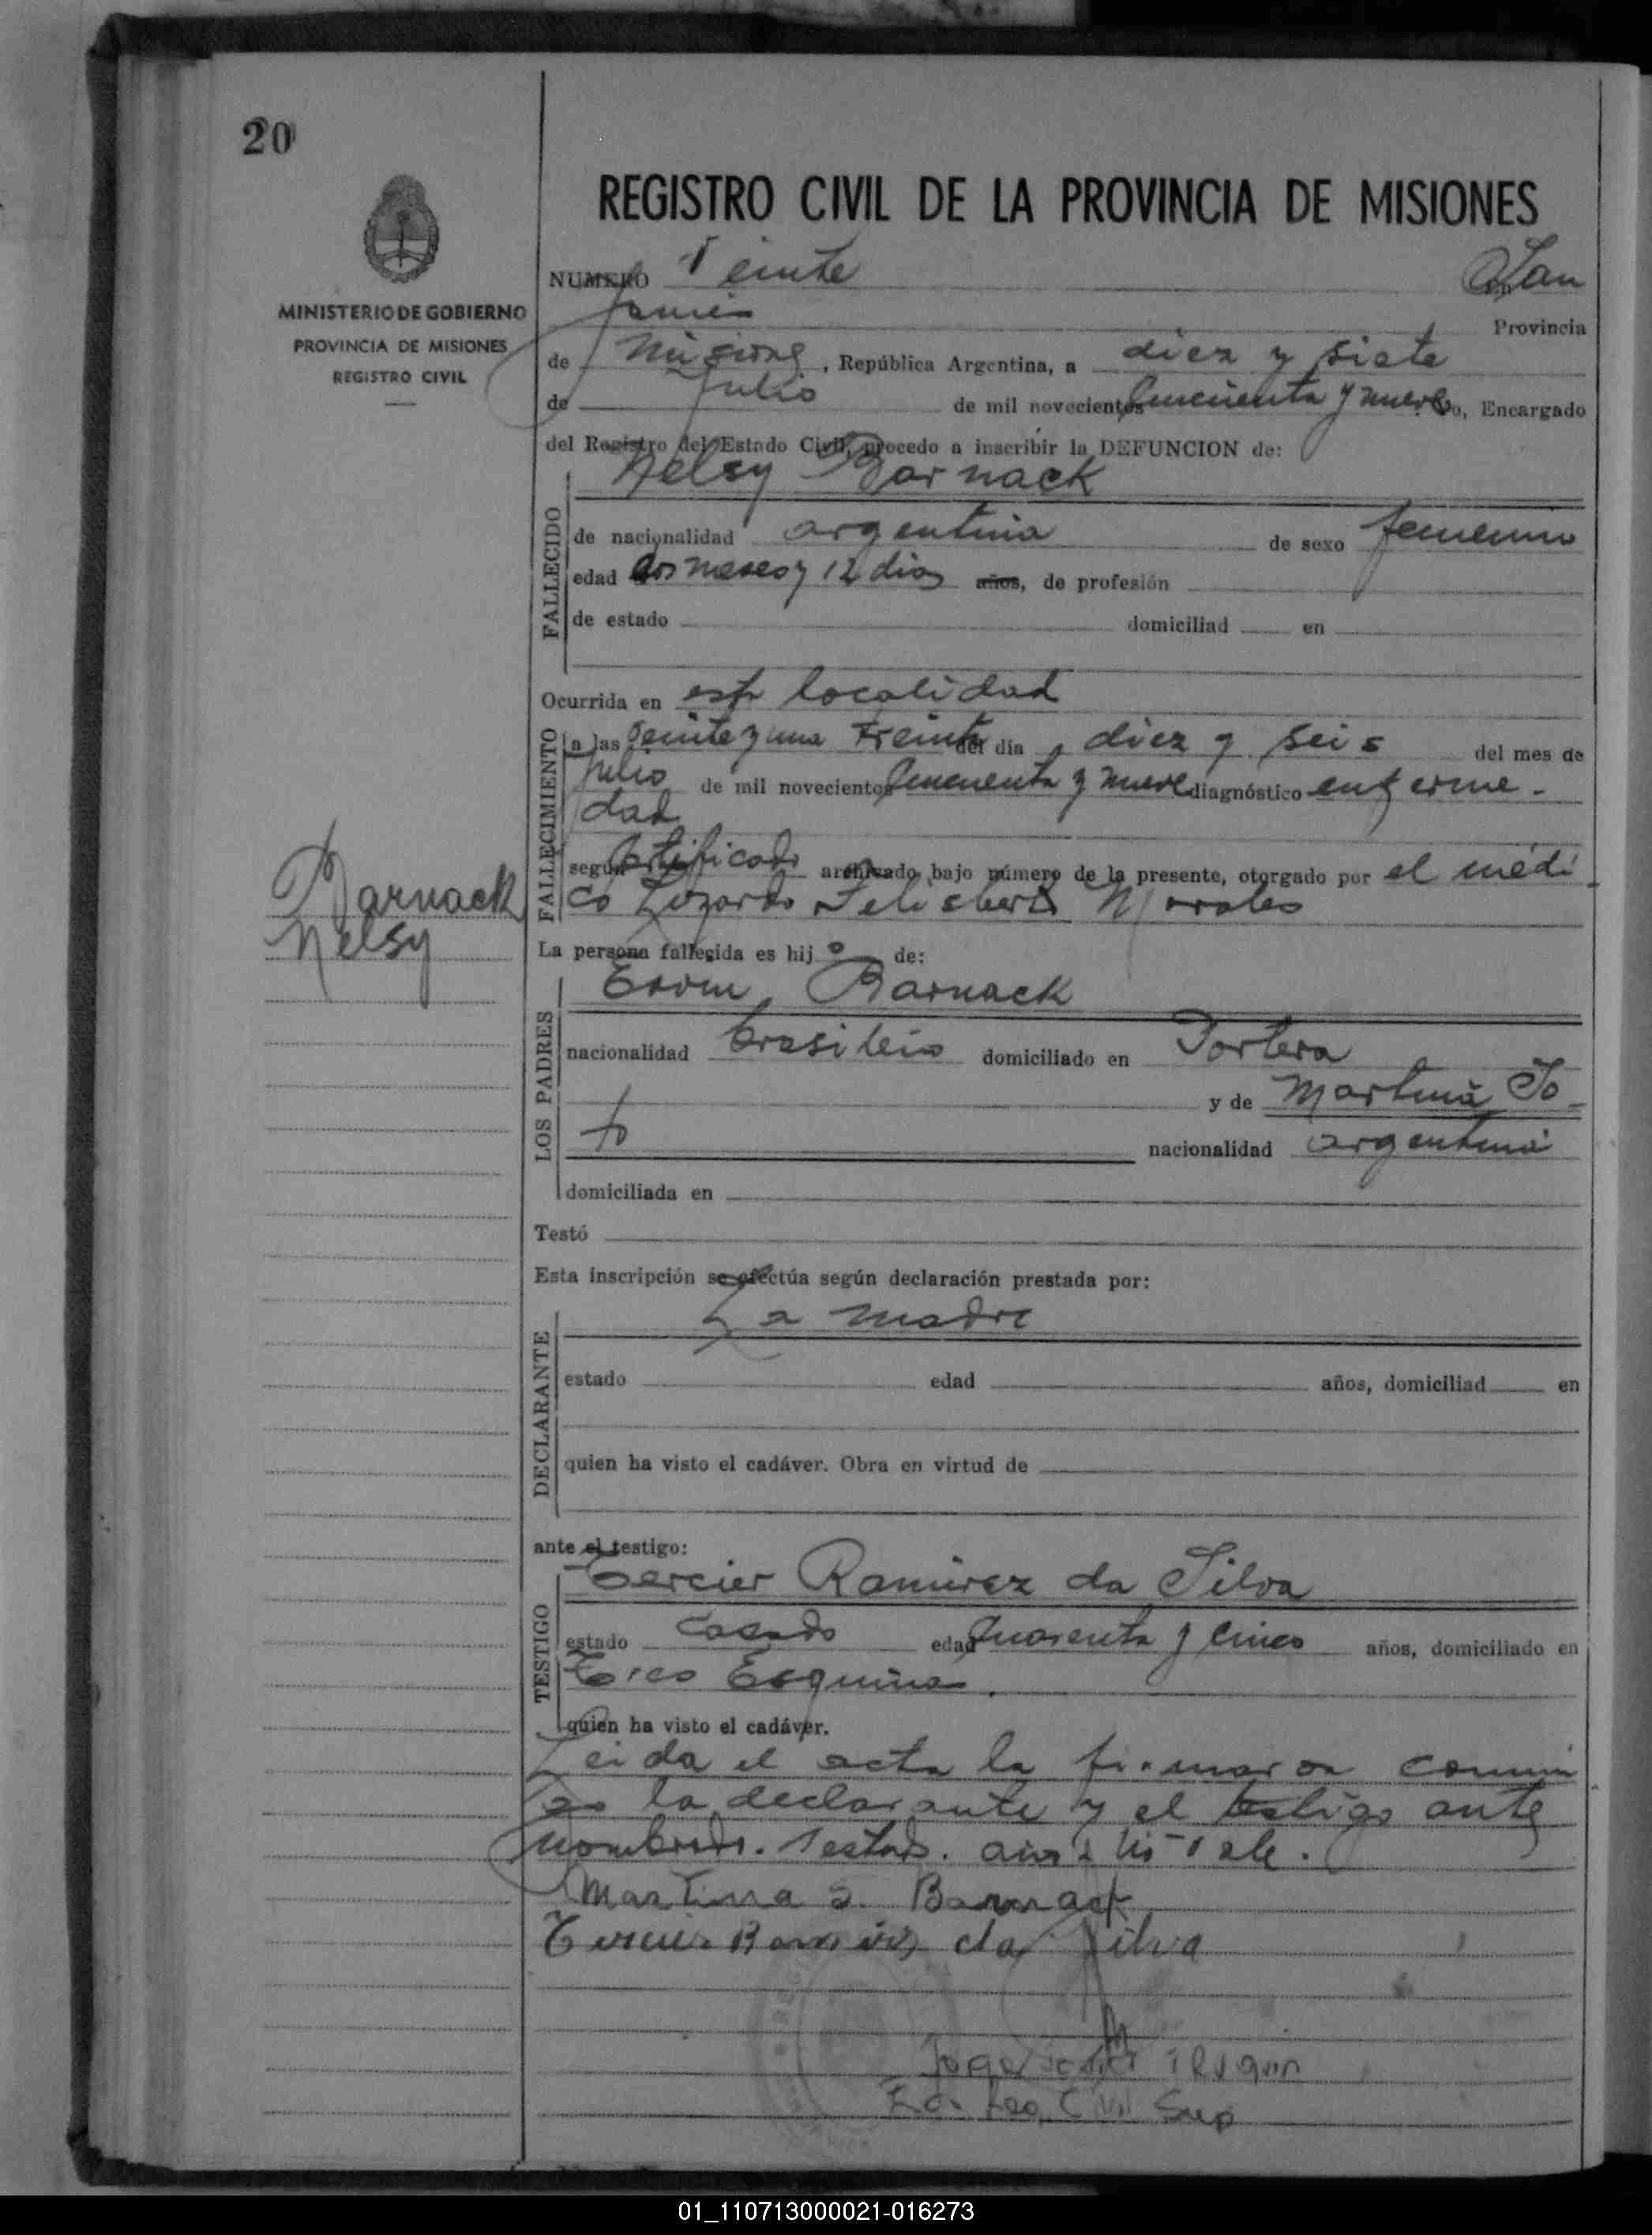 20
REGISTRO CIVIL DE LA PROVINCIA DE MISIONES
MINISTERIO DE GOBIERNO
PROVINCIA DE MISIONES
REGISTRO CIVIL
NUMERO Veinte San
Javier Provincia
de Misiones, República Argentina, a diez y siete
de Julio de mil novecientos cincuenta y nueve, Encargado
del Registro del Estado Civil, procedo a inscribir la DEFUNCION de:
Nelsy Barnack
FALLECIDO
de nacionalidad argentina de sexo femenino
edad dos meses y 12 dias años, de profesión
de estado domiciliad en
Ocurrida en esta localidad
FALLECIMIENTO
a las veinte y una treinta del día diez y seis del mes de
Julio de mil novecientos cincuenta y nueve diagnóstico enferme-
dad
según certificado archivado bajo número de la presente, otorgado por el médi-
co Lizardo Morales
Barnack
Nelsy
La persona fallecida es hij o de:
LOS PADRES
Barnack
nacionalidad brasileño domiciliado en Portera
y de Martina So-
to nacionalidad argentina
domiciliada en
Testó
Esta inscripción se efectúa según declaración prestada por:
DECLARANTE
La madre
estado edad años, domiciliad en
quien ha visto el cadáver. Obra en virtud de
ante el testigo:
TESTIGO
Tercier Ramirez da Silva
estado casado edad cuarenta y cinco años, domiciliado en
Tres Esquinas.
quien ha visto el cadáver.
Leida el acta la firmaron conmi
go la declarante y el testigo ante
nombrado. Testado. años: No Vale.
Martina S. Barnack
Tercier Ramirez da Silva
Civil Sup
01_110713000021-016273